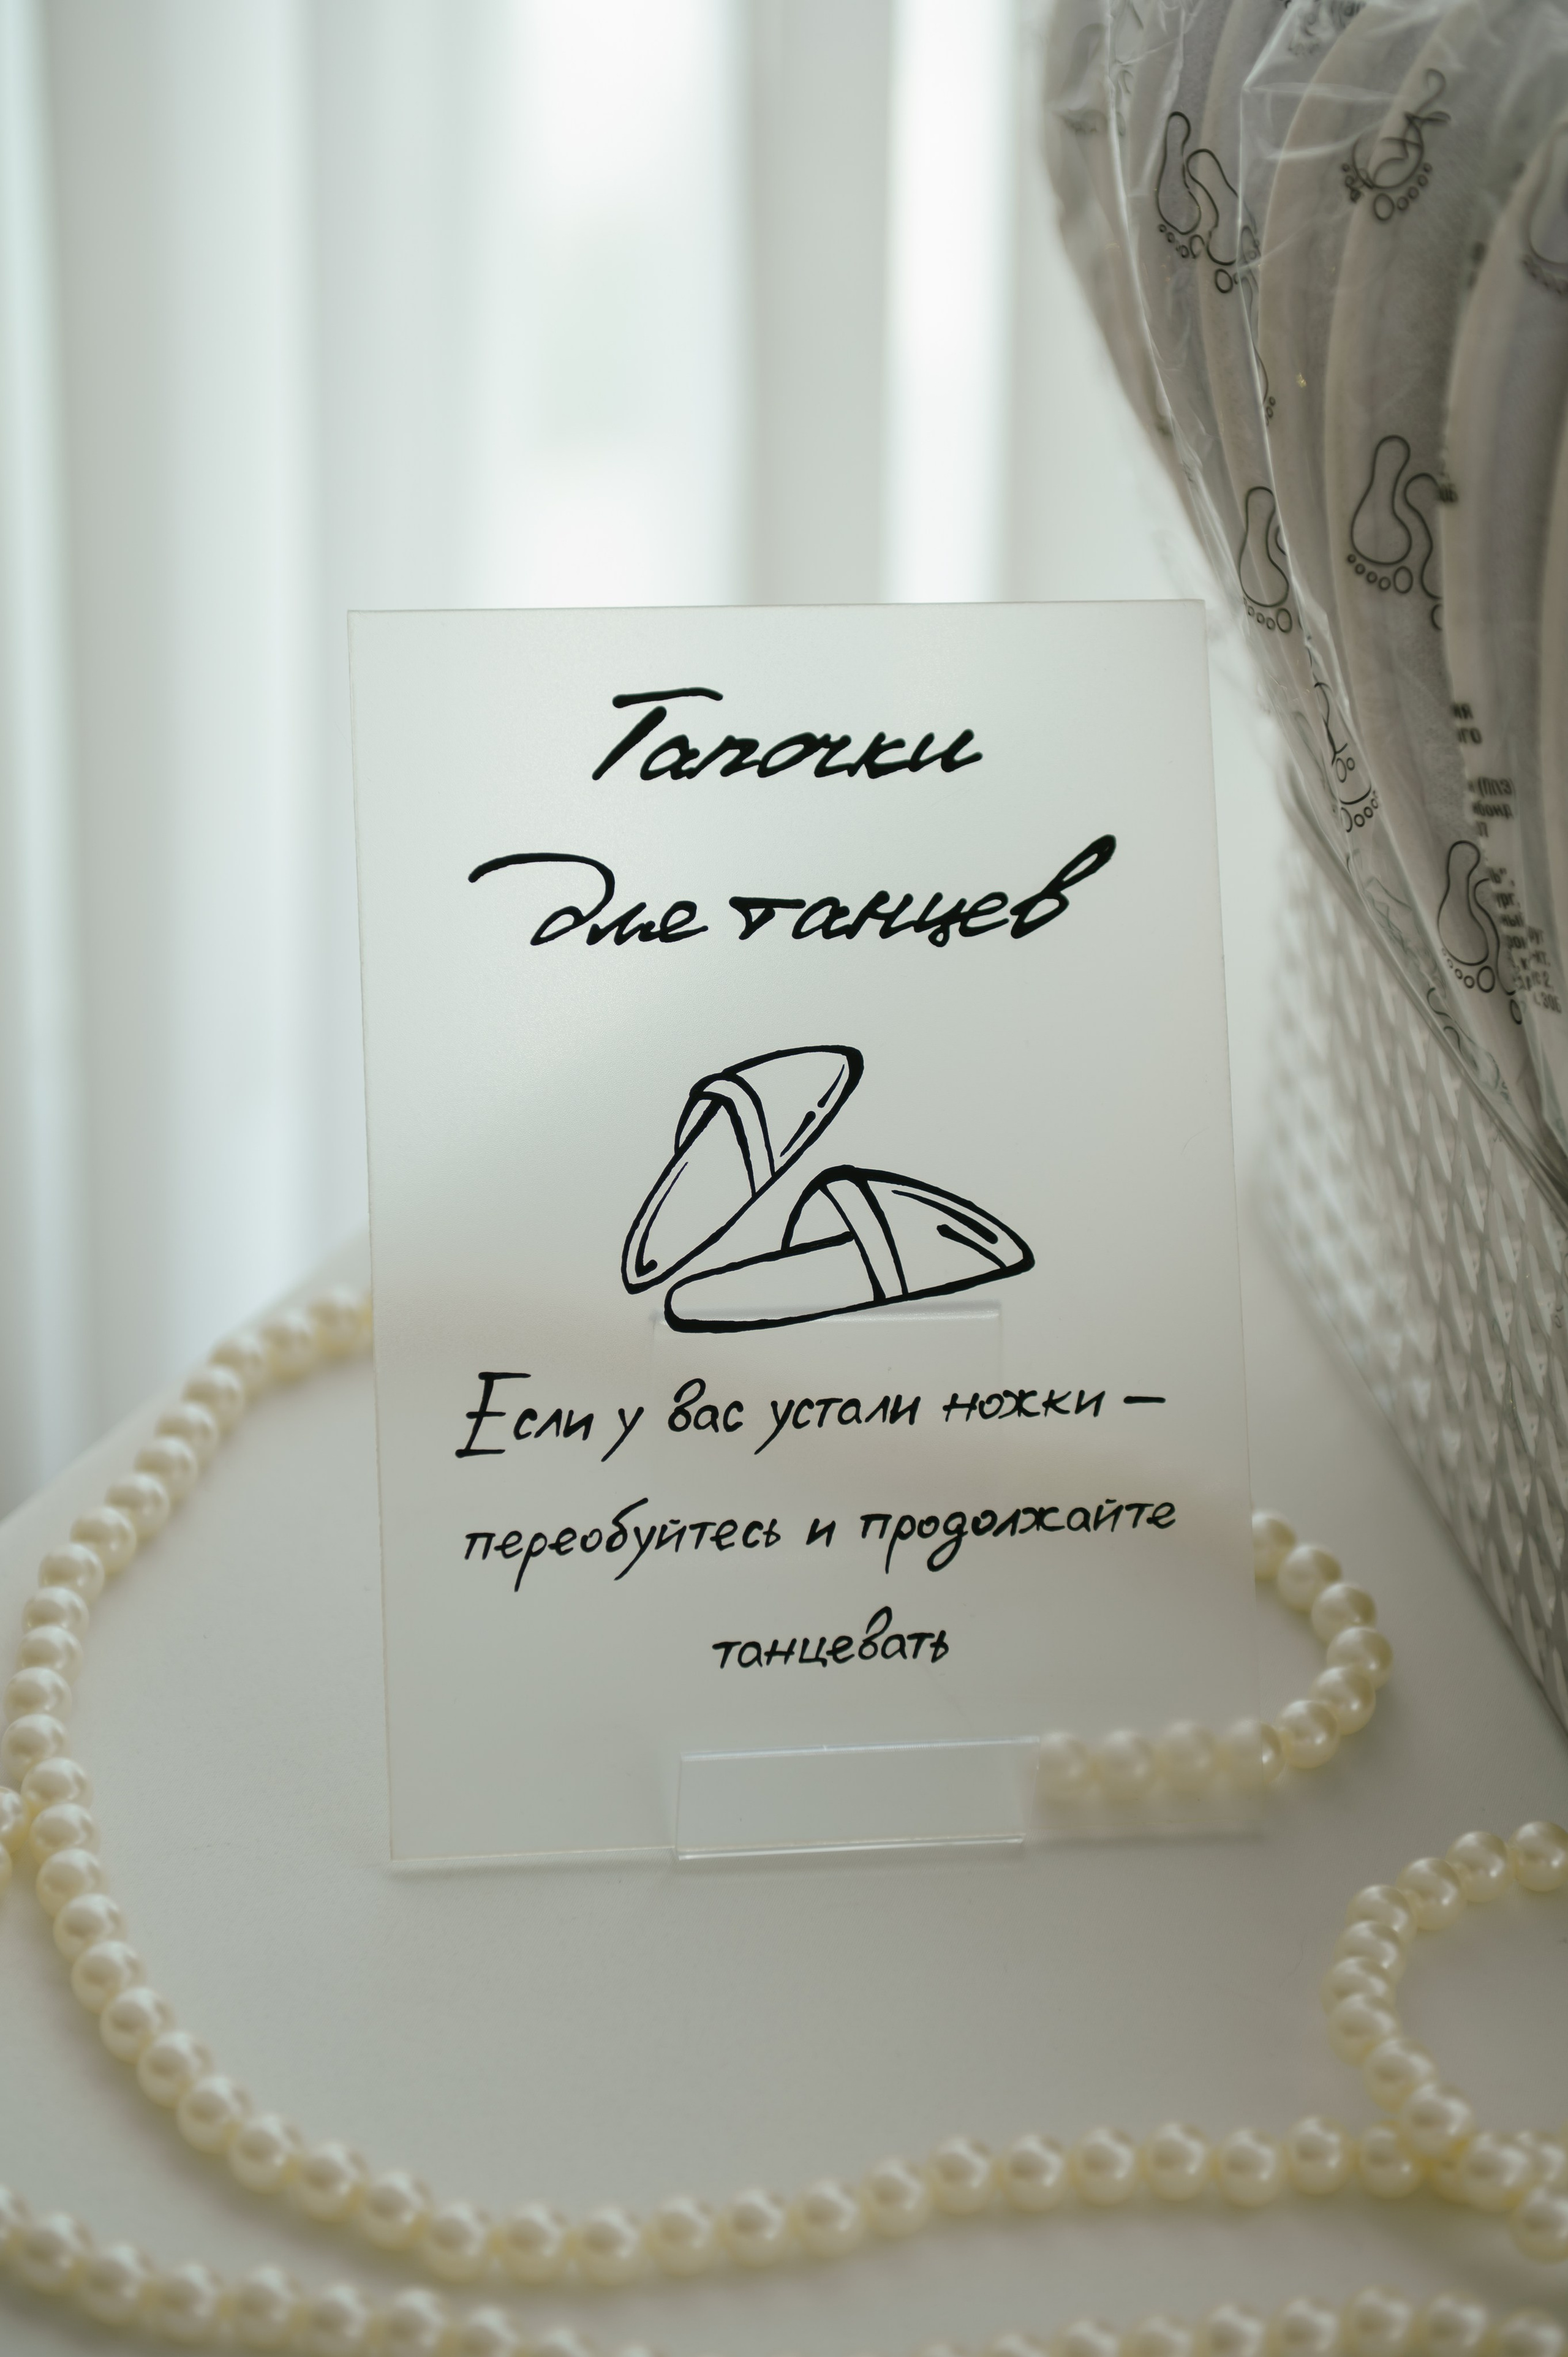 Тапочки
для танцев
Если у вас устали ножки —
переобуйтесь и продолжайте
танцевать